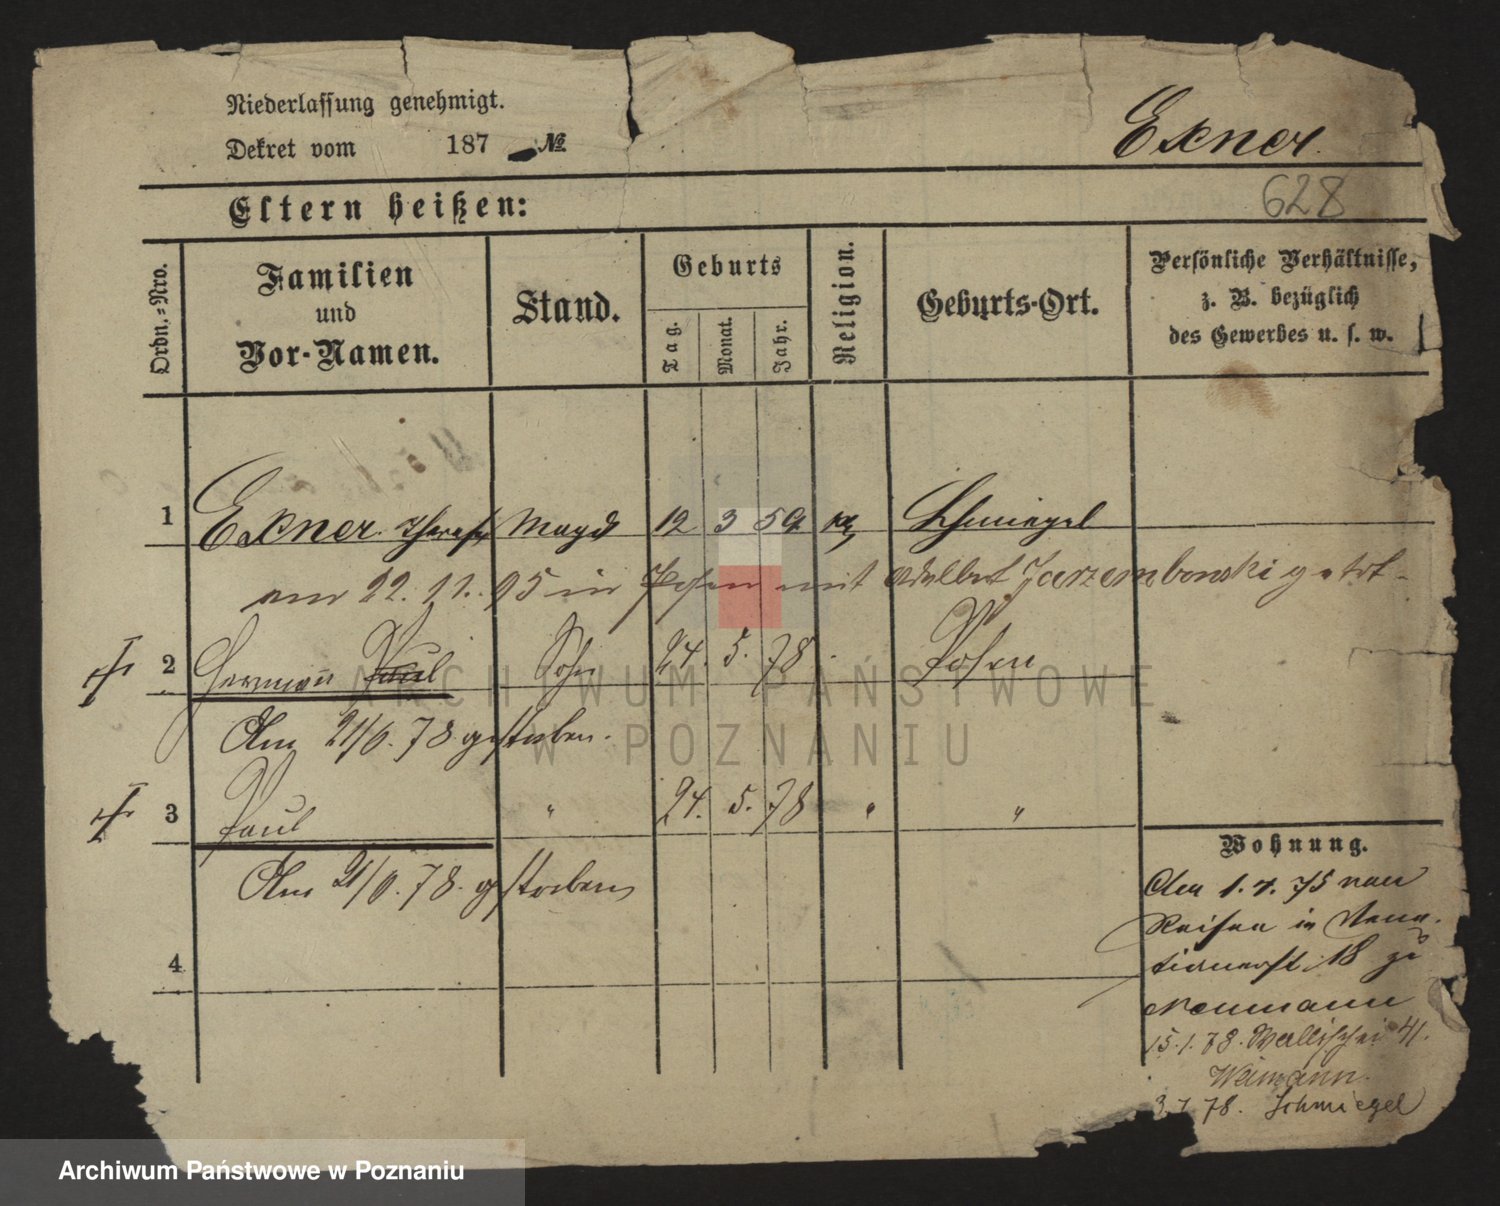 Niederlassung genehmigt.
Dekret vom 187 №
Exner.
628
Eltern heißen:
Ordn.-Nro.
Familien
und
Vor-Namen.
Stand.
Geburts
Tag.
Monat.
Jahr.
Religion.
Geburts-Ort.
Persönliche Verhältnisse,
z. B. bezüglich
des Gewerbes u. s. w.
1 Exner Magd 12 3 59 Schmiegel
am 22. 11. 95 in Posen mit Adalbert Jarzembowski getrt.
2 Hermann Paul Sohn 24. 5. 78. Posen
Am 21/6. 78 gestorben.
3 Paul " 24. 5. 78 " "
Am 21/6. 78. gestorben
4
Wohnung.
Am 1. 7. 75 von
Reisen in
18 zu
Neumann
15. 1. 78. Wallischei 41.
Weimann.
78. Schmiegel
ARCHIWUM PAŃSTWOWE
W POZNANIU
Archiwum Państwowe w Poznaniu